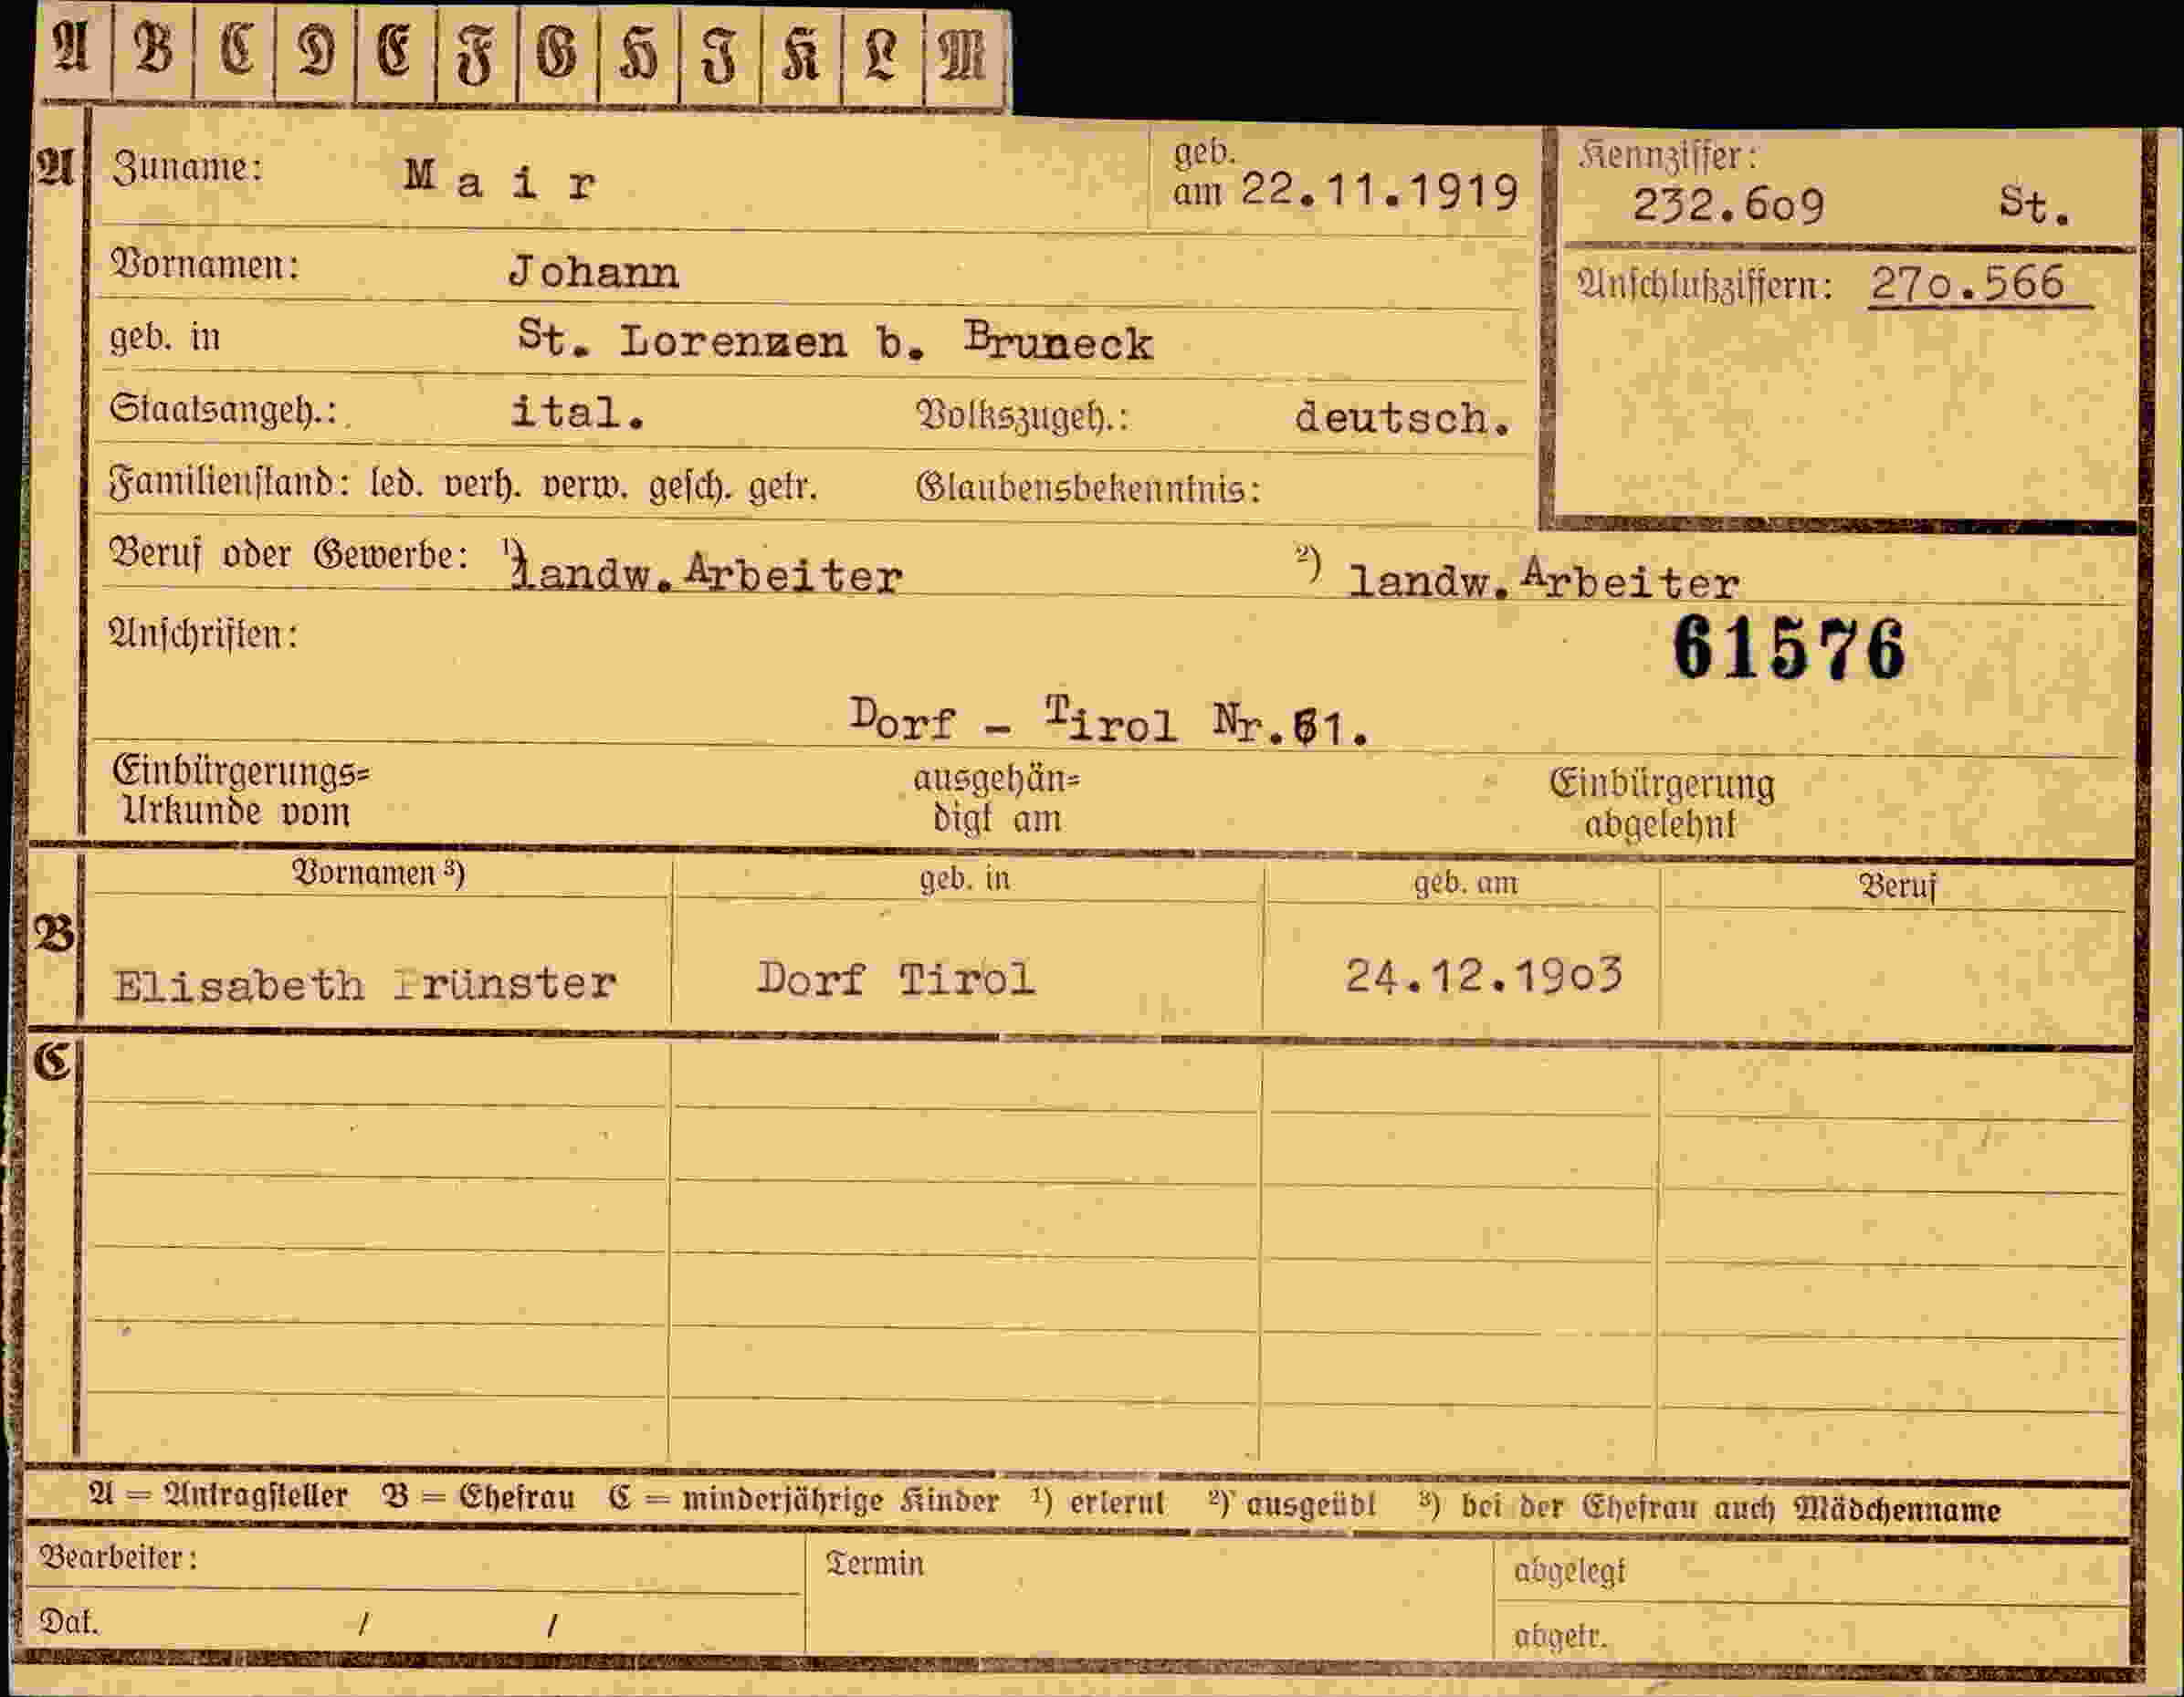 A B C D E F G H I K L M
A Zuname: Mair geb. am 22.11.1919 Kennziffer: 232.609 St.
Vornamen: Johann Anschlußziffern: 270.566
geb. in St. Lorenzen b. Bruneck
Staatsangeh.: ital. Volkszugeh.: deutsch.
Familienstand: led. verh. verw. gesch. getr. Glaubensbekenntnis:
Beruf oder Gewerbe: 1) landw. Arbeiter 2) landw. Arbeiter
Anschriften: 61576
Dorf - Tirol Nr.
Einbürgerungs= ausgehän= Einbürgerung
Urkunde vom digt am abgelehnt
Vornamen 3) geb. in geb. am Beruf
B
Elisabeth Prünster Dorf Tirol 24.12.1903
C
A = Antragsteller B = Ehefrau C = minderjährige Kinder 1) erlernt 2) ausgeübt 3) bei der Ehefrau auch Mädchenname
Bearbeiter: Termin abgelegt
Dat. / / abgetr.